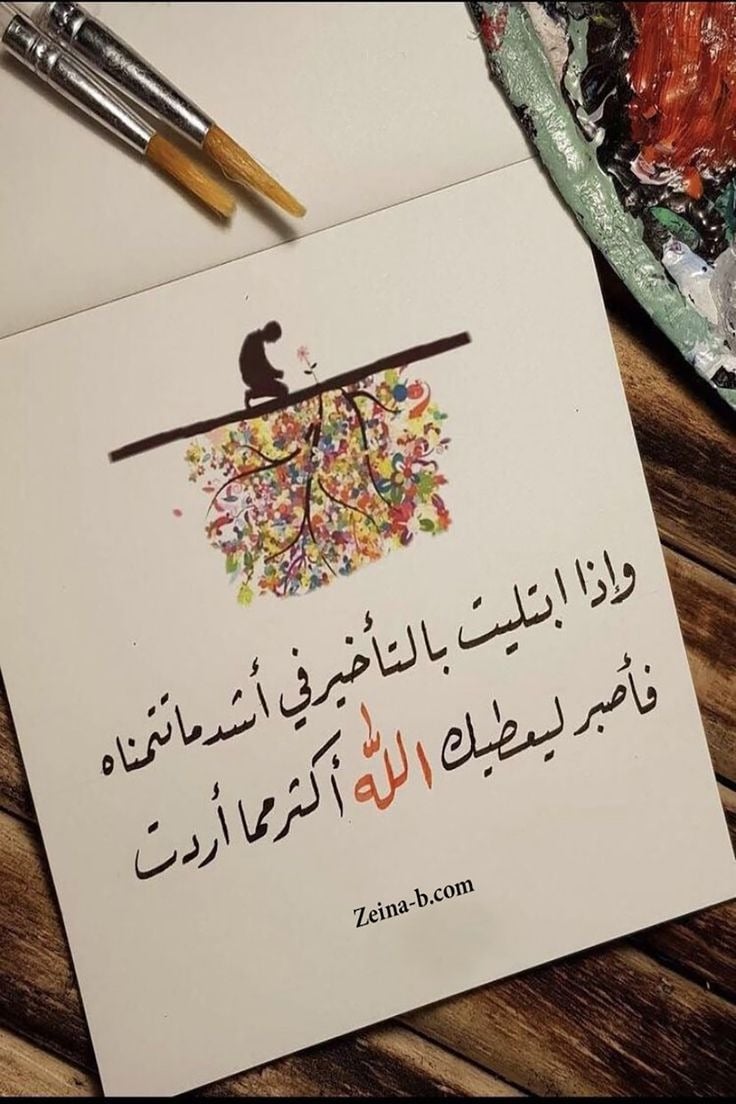 وإذا ابتليت بالتأخير في أشد ما تتمناه
فأصبر ليعطيك الله أكثر مما أردت
Zeina-b.com